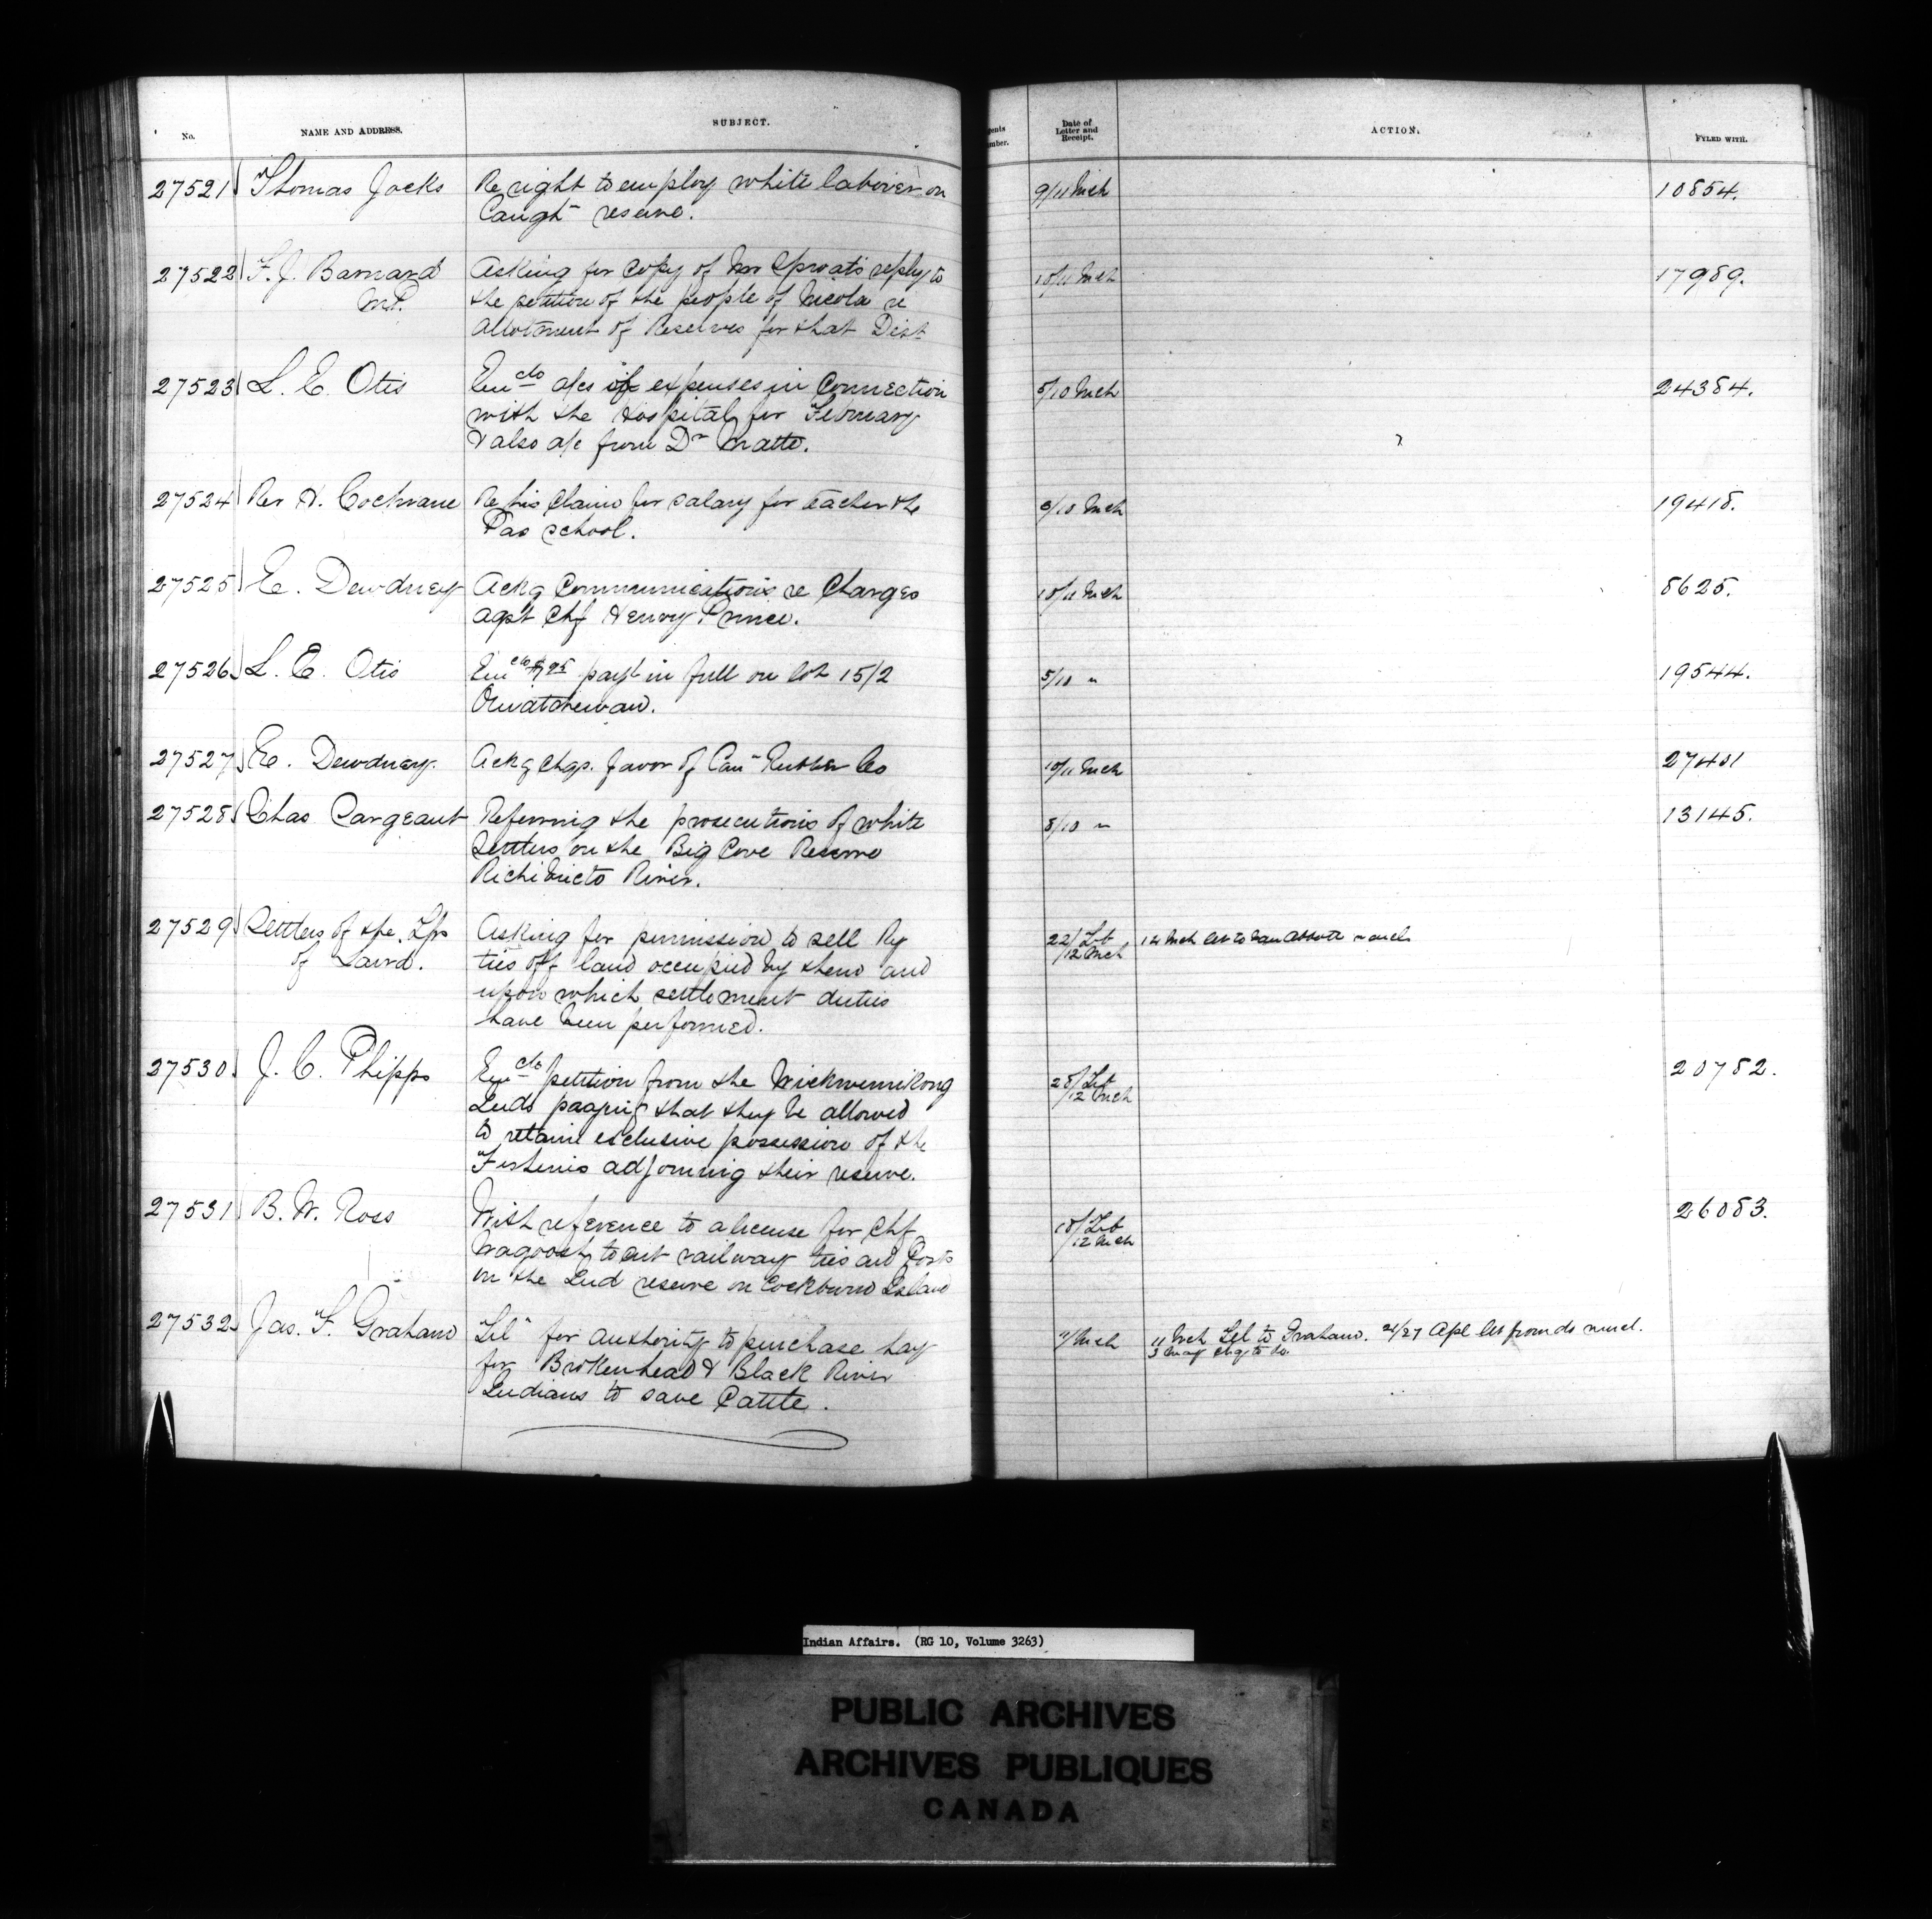 No. NAME AND ADDRESS. SUBJECT. Date of Letter and Receipt. ACTION. FYLED WITH.
27521 Thomas Jocks Re right to employ white laborer on 9/11 Mch 10854.
Caught reserve.
27522 F. J. Barnard Asking for copy of Mr Sproats reply to 10/11 Mch 17989.
M.P. the petition of the people of Nicola re
allotment of Reserves for that Dist
27523 L. E. Otis Encls a/cs of expenses in connection 5/10 Mch 24384.
with the Hospital for February
& also a/c from Dr Matte.
27524 Rev H. Cochrane Re his claim for salary for teacher the /10 Mch 19418.
Pas school.
27525 E. Dewdney Ackg Communications re Charges 10/11 Mch 8625.
agst Chf Henry Prince.
27526 L. E. Otis Encls payt in full on lot 15/2 5/10 " 19544.
Ouiatchewan.
27527 E. Dewdney. Ackg chqs. favor of Can Rubber Co 10/11 Mch 27401
27528 Chas Sargeant Referring the prosecutions of white 8/10 " 13145.
Settlers on the Big Cove Reserve
Richibucto River.
27529 Settlers of the Tps Asking for permission to sell Ry 22/Feb 14 Mch let to
of Laird. ties off land occupied by them and /12 Mch
upon which settlement duties
have been performed.
27530 J. C. Phipps Encls petition from the Wickwemikong 28/Feb 20782.
Inds praying that they be allowed /12 Mch
to retain exclusive possession of the
Fisheries adjoining their reserve.
27531 B. W. Ross With reference to a license for Chf 18/Feb 26083.
Wagoosh to cut railway ties and Posts /12 Mch
on the Ind reserve on Cockburn Island
27532 Jas. F. Graham Tel for authority to purchase hay /Mch 11 Mch Tel to Graham. 21/27 Apl let from do
for Brokenhead & Black River 3 May chq to do.
Indians to save Cattle.
Indian Affairs. (RG 10, Volume 3263)
PUBLIC ARCHIVES
ARCHIVES PUBLIQUES
CANADA